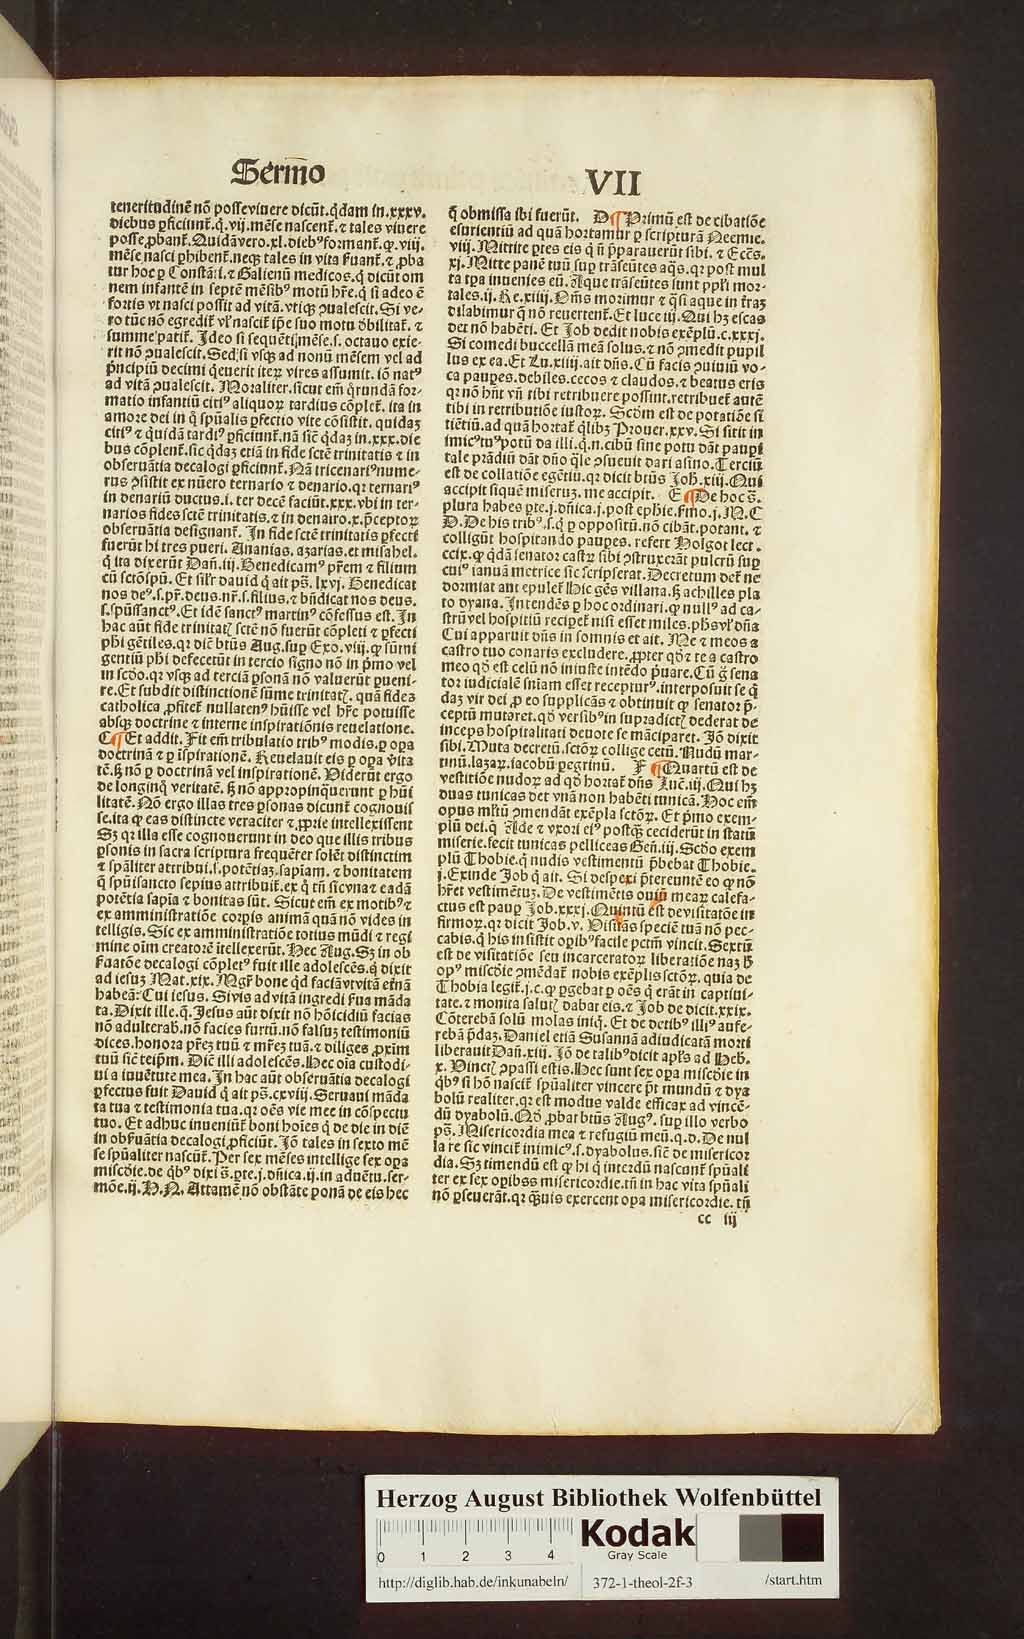 Sermo VII
teneritudinē nō posse viuere dicūt. q̄dam in .xxxv.
diebus ꝑficiunt̄. q̄. vij. mēse nascent̄. ⁊ tales viuere
posse ꝓbant̄. Quidā vero .xl. dieb⁹ formant̄. qꝫ. viij.
mēse nasci ꝑhibent̄. neqꝫ tales in vita ẜuant̄. ⁊ ꝓba
tur hoc ꝑ Constāti. ⁊ Galienū medicos. q̄ dicūt om
nem infantē in septē mēsib⁹ motū hr̄e. q̄ si adeo ē
fortis vt nasci possit ad vitā. vtiqꝫ ꝯualescit. Si ve-
ro tūc nō egredit̄ vl' nascit̄ ip̄e suo motu d̄bilitat̄. ⁊
summe patit̄. Ideo si sequēti mēse .s. octauo exie-
rit nō ꝯualescit. Sed si vsqꝫ ad nonū mēsem vel ad
p̄ncipiū decimi q̄euerit iteꝝ vires assumit. iō nat⁹
ad vitā ꝯualescit. Moraliter. sicut em̄ q̄rundā for-
matio infantiū citi⁹ aliquoꝝ tardius cōplet̄. ita in
amore dei in q̄ sp̄ualis ꝑfectio vite cōsistit. quidaꝫ
citi⁹ ⁊ quidā tardi⁹ ꝑficiunt̄. nā sic̄ q̄daꝫ in .xxx. die
bus cōplent̄. sic q̄daꝫ etiā in fide sctē trinitatis ⁊ in
obseruātia decalogi ꝑficiunt̄. Nā tricenari⁹ nume-
rus ꝯsistit ex nūero ternario ⁊ denario. qꝛ ternari⁹
in denariū ductus .i. ter decē faciūt .xxx. vbi in ter-
narios fides sctē trinitatis. ⁊ in denairo .x. p̄ceptoꝝ
obseruātia designant̄. In fide sctē trinitatis ꝑfecti
fuerūt hi tres pueri. Ananias, azarias. et misahel.
q̄ ita dixerūt Dan̄. iij. Benedicam⁹ pr̄em ⁊ filium
cū sctōsp̄ū. Et sil'r dauid q̄ ait ps̄. lxvj. Benedicat
nos de⁹ .s. pr̄. deus. nr̄. s. filius. ⁊ bn̄dicat nos deus.
.s. sp̄ussanct⁹. Et idē sanct⁹ martin⁹ cōfessus est. In
hac aūt fide trinitatꝭ sctē nō fuerūt cōpleti ⁊ ꝑfecti
ph̄i gētiles. qꝛ dic̄ bt̄us Aug. suꝑ Exo. viij. qꝫ sum̄i
gentiū ph̄i defecerūt in tercio signo nō in p̄mo vel
in scd̄o. qꝛ vsqꝫ ad terciā ꝑsonā nō valuerūt ꝑueni-
re. Et subdit distinctionē sūme trinitatꝭ. quā fideꝫ
catholica ꝓfitet̄ nullaten⁹ hūisse vel hr̄e potuisse
absqꝫ doctrine ⁊ interne inspirationis reuelatione.
C Et addit. Fit em̄ tribulatio trib⁹ modis. ꝑ oꝑa
doctrinā ⁊ ꝑ īspirationē. Reuelauit eis ꝑ oꝑa v̄ita
tē. ẜꝫ nō ꝑ doctrinā vel inspirationē. Viderūt ergo
de longinq̄ veritatē. ẜꝫ nō appropinquerunt ꝑ hūi
litatē. Nō ergo illas tres ꝑsonas dicunt̄ cognouis
se. ita qꝫ eas distincte veraciter ⁊ ꝓprie intellexissent
Sꝫ qꝛ illa esse cognouerunt in deo que illis tribus
ꝑsonis in sacra scriptura frequēter solēt distinctim
⁊ spāliter attribui. s. potētiaꝫ. sapiam. ⁊ bonitatem
q̄ sp̄uisancto sepius attribuit̄. ex q̄ tn̄ sic vna ⁊ eadā
potētia sapīa ⁊ bonitas sūt. Sicut em̄ ex motib⁹ ⁊
ex amministratiōe corpis animā quā nō vides in
telligis. Sic ex amministratiōe totius mūdi ⁊ regi
mine oīm creatorē ītellexerūt. Hec Aug. Sꝫ in ob
ẜuatōe decalogi cōplet⁹ fuit ille adolescēs. q̄ dixit
ad iesuꝫ Mat. xix. Mgr̄ bone qd faciā vt vitā et̄nā
habeā: Cui iesus. Si vis ad vitā ingredi ẜua māda
ta. Dixit ille. q̄. Jesus aūt dixit nō hōicidiū facias
nō adulterab. nō facies furtū. nō falsuꝫ testimoniū
dices. honora pr̄eꝫ tuū ⁊ mr̄eꝫ tuā. ⁊ diliges ꝓxīm
tuū sic̄ teip̄m. Dic̄ illi adolescēs. Hec oīa custodi-
ui a iuuētute mea. In hac aūt obseruātia decalogi
ꝑfectus fuit Dauid q̄ ait ps̄. cxviij. Seruaui māda
ta tua ⁊ testimonia tua. qꝛ oēs vie mee in cōspectu
tuo. Et adhuc inueniūt̄ boni hoīes q̄ de die in diē
in obẜuātia decalogi ꝓficiūt. Iō tales in sexto mē
se sp̄ualiter nascūt̄. Per sex mēses intellige sex oꝑa
miscd̄ie. de q̄b⁹ dixi s̄. ꝑte. j. dn̄ica. ij. in aduētu. ser-
mōe. ij. H. N. Attamē nō obstāte ponā de eis hec
q̄ obmissa ibi fuerūt. D Primū est de cibatiōe
esurientiū ad quā hortamur ꝑ scripturā Neemie.
viij. Mittite ꝑtes eis q̄ n̄ p̄parauerūt sibi. ⁊ Eccs̄.
xj. Mitte panē tuū suꝑ trāseūtes aq̄s. qꝛ post mul
ta tꝑa inuenies eū. Aque trāseūtes sunt ppl'i mor-
tales. ij. Re. xiiij. Om̄s morimur ⁊ q̄si aque in t̄raꝫ
dilabimur q̄ nō reuertent̄. Et luce iij. Qui hꝫ escas
det nō habēti. Et Job dedit nobis exēplū. c. xxxj.
Si comedi buccellā meā solus. ⁊ nō ꝯmedit pupil
lus ex ea. Et Lu. xiiij. ait dn̄s. Cū facis ꝯuiuiū vo-
ca pauꝑes. debiles. cecos ⁊ claudos. ⁊ beatus eris
qꝛ nō hn̄t vn̄ tibi retribuere possint. retribuet̄ autē
tibi in retributiōe iustoꝝ. Scd̄m est de potatiōe si
tiētiū. ad quā hortat̄ q̄libꝫ Prouer. xxv. Si sitit in
imic⁹ tu⁹ potū da illi. q. n. cibū sine potu dāt pauꝑi
tale prādiū dāt dn̄o q̄le ꝯsueuit dari asino. Terciū
est de collatiōe egētiu. qꝛ dicit bt̄us Joh̄. xiij. Qui
accipit siquē miseruꝫ. me accipit. E De hoc s̄.
plura habes ꝑte. j. dn̄ica. j. post eph̄ie. ẜmo. j. M. C
D. De his trib⁹ .s. q̄ ꝑ oppositū. nō cibāt. potant. ⁊
colligūt hospitando pauꝑes. refert Holgot lect.
ccix. qꝫ q̄dā senator castꝝ sibi ꝯstruxerāt pulcrū suꝑ
cui⁹ ianuā metrice sic scripserat. Decretum det̄ ne
dormiat aut epulet̄ Hic gēs villana. ẜꝫ achilles pla
to dyana. Intendēs ꝑ hoc ordinari. qꝫ null⁹ ad ca-
strū vel hospitiū recipet̄ nisi esset miles. ph̄s vl' dn̄a
Cui apparuit dn̄s in somnis et ait. Me ⁊ meos a
castro tuo conaris excludere. ꝓpter qd̄ ⁊ te a castro
meo qd̄ est celū nō iniuste intēdo p̄uare. Cū ḡ sena
tor iudicialē sn̄iam esset receptur⁹. interposuit se q̄
daꝫ vir dei ꝓ eo supplicās ⁊ obtinuit qꝫ senator p̄-
ceptū mutaret. qd̄ versib⁹ in supradictꝭ dederat de
inceps hospitalitati deuote se māciparet. Iō dixit
sibi. Muta decretū. sctōꝝ collige cetū. Nudū mar-
tinū. lazaꝝ. iacobū ꝑegrinū. F Quartū est de
vestitiōe nudoꝝ ad qd̄ hortat̄ dn̄s Luc̄. iij. Qui hꝫ
duas tunicas det vnā non habēti tunicā. Hoc em̄
opus ml'tū ꝯmendāt exēpla sctōꝝ. Et p̄mo exem-
plū dei. q̄ Ade ⁊ vxori ei⁹ postqꝫ ceciderūt in statū
miserie. fecit tunicas pelliceas Gen̄. iij. Scd̄o exem
plū Thobie. q̄ nudis vestimentū p̄bebat Thobie.
j. Exinde Job q̄ ait. Si despexi p̄tereuntē eo qꝫ nō
hr̄et vestimētuꝫ. De vestimētis ouiū meaꝝ calefa-
ctus est pauꝑ Job. xxxj. Quintū est de visitatōe in
firmoꝝ. qꝛ dicit Job. v. Visitās speciē tuā nō pec-
cabis. q̄ his insistit oꝑib⁹ facile pctm̄ vincit. Sextū
est de visitatiōe seu incarceratoꝝ liberatiōe naꝫ h̄
op⁹ miscd̄ie ꝯmēdat̄ nobis exēplis sctōꝝ. quia de
Thobia legit̄. j. c. qꝫ ꝑgebat ꝑ oēs q̄ erāt in captiui-
tate. ⁊ monita salutꝭ dabat eis. ⁊ Job de dicit. xxix.
Cōterebā solū molas iniq̄. Et de dētib⁹ illi⁹ aufe-
rebā p̄daꝫ. Daniel etiā Susannā adiudicatā morti
liberauit Dan̄. xiij. Iō de talib⁹ dicit apl's ad Heb̄.
x. Vinctꝭ ꝯpassi estis. Hec sunt sex oꝑa miscd̄ie in
q̄b⁹ si hō nascit̄ sp̄ualiter vincere pt̄ mundū ⁊ dya
bolū realiter. qꝛ est modus valde efficax ad vincē-
dū dyabolū. Qd̄ ꝓbat bt̄us Aug⁹. suꝑ illo verbo
ps̄. Misericordia mea ⁊ refugiū meū. q. d. De nul
la re sic vincit̄ inimic⁹. s. dyabolus. sic̄ de misericor
dia. Sꝫ timendū est qꝫ hi q̄ interdū nascunt̄ sp̄uali
ter ex sex oꝑibus misericordie. tn̄ in hac vita sp̄uali
nō ꝑseuerāt. qꝛ qꝫuis exercent oꝑa misericordie. tn̄
cc iij
Herzog August Bibliothek Wolfenbüttel
0 1 2 3 4
Kodak
Gray Scale
http://diglib.hab.de/inkunabeln/ 372-1-theol-2f-3 /start.htm